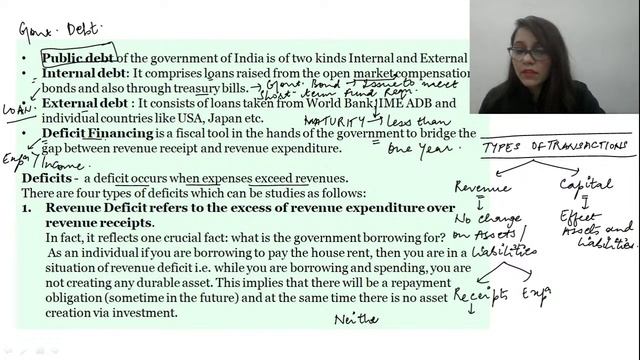 Govt. Debt.
• Public debt of the government of India is of two kinds Internal and External
• Internal debt: It comprises loans raised from the open market compensation
bonds and also through treasury bills. → Govt. Bond → Issue to meet
short-term Fund Reqi.
LOAN
• External debt : It consists of loans taken from World Bank, IME ADB and
individual countries like USA, Japan etc.
MATURITY → Less than
one year.
• Deficit Financing is a fiscal tool in the hands of the government to bridge the
gap between revenue receipt and revenue expenditure.
Exp /
Income.
Deficits - a deficit occurs when expenses exceed revenues.
There are four types of deficits which can be studies as follows:
1. Revenue Deficit refers to the excess of revenue expenditure over
revenue receipts.
In fact, it reflects one crucial fact: what is the government borrowing for?
As an individual if you are borrowing to pay the house rent, then you are in a
situation of revenue deficit i.e. while you are borrowing and spending, you are
not creating any durable asset. This implies that there will be a repayment
obligation (sometime in the future) and at the same time there is no asset
creation via investment.
Neithe
TYPES OF TRANSACTIONS
Revenue Capital
No change
on Assets /
Liabilities
Effect
Assets and
Liabilities.
Receipts Exp